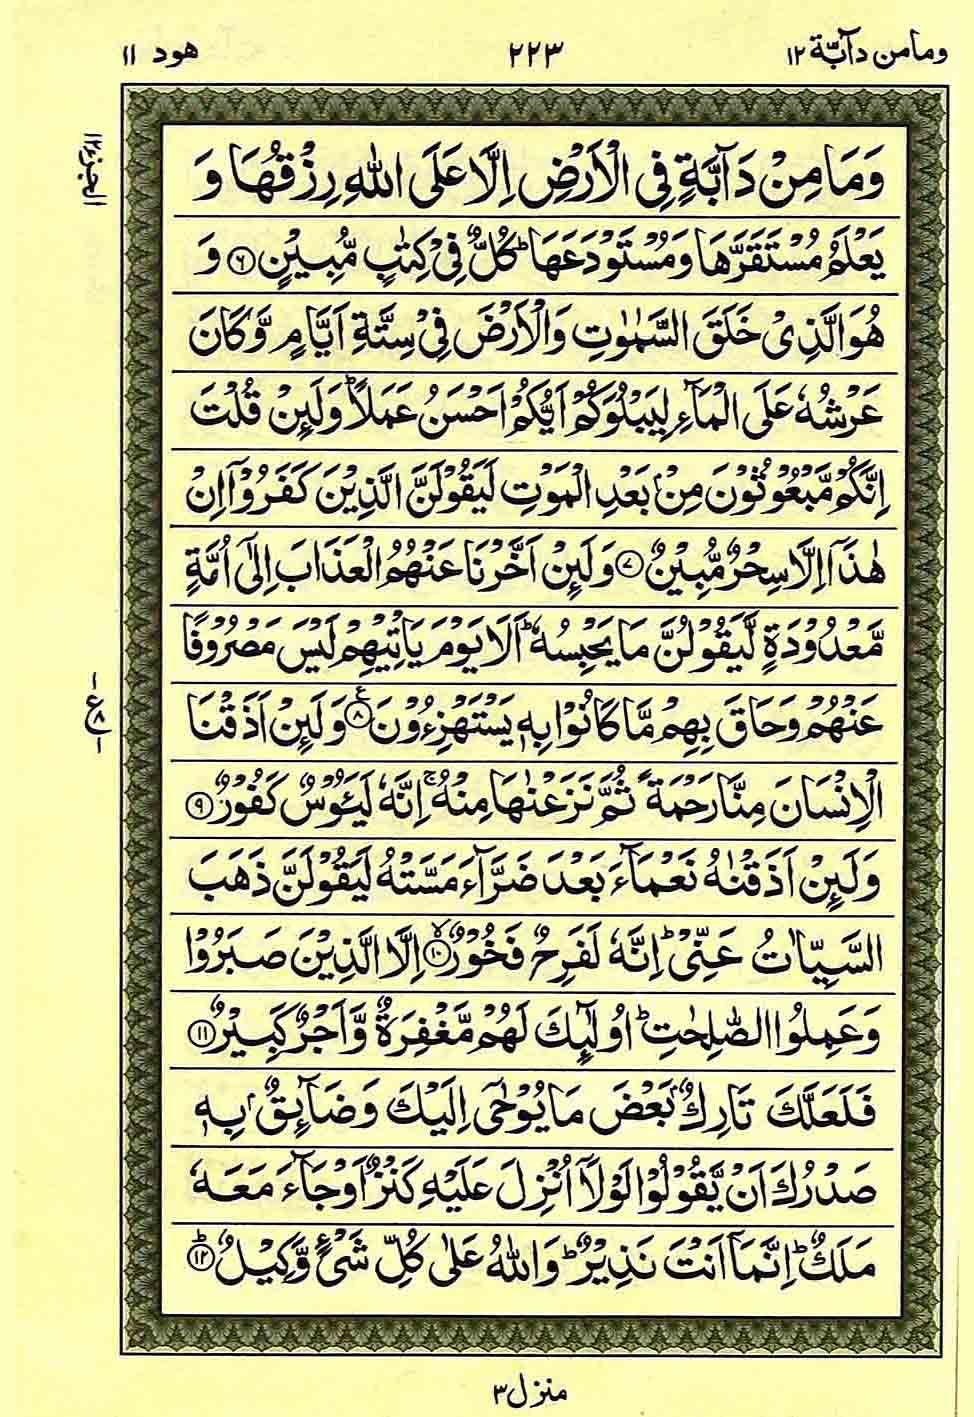 ومامن دآبّة ١٢
٢٢٣
هود ١١
الجزء ١٢
وَمَا مِنْ دَآبَّةٍ فِي الْاَرْضِ اِلَّا عَلَى اللّٰهِ رِزْقُهَا وَ
يَعْلَمُ مُسْتَقَرَّهَا وَمُسْتَوْدَعَهَا ؕ كُلٌّ فِيْ كِتٰبٍ مُّبِيْنٍ ۶ وَ
هُوَ الَّذِيْ خَلَقَ السَّمٰوٰتِ وَالْاَرْضَ فِيْ سِتَّةِ اَيَّامٍ وَّكَانَ
عَرْشُهٗ عَلَى الْمَآءِ لِيَبْلُوَكُمْ اَيُّكُمْ اَحْسَنُ عَمَلًا ؕ وَلَئِنْ قُلْتَ
اِنَّكُمْ مَّبْعُوْثُوْنَ مِنْۢ بَعْدِ الْمَوْتِ لَيَقُوْلَنَّ الَّذِيْنَ كَفَرُوْۤا اِنْ
هٰذَاۤ اِلَّا سِحْرٌ مُّبِيْنٌ ۷ وَلَئِنْ اَخَّرْنَا عَنْهُمُ الْعَذَابَ اِلٰۤى اُمَّةٍ
مَّعْدُوْدَةٍ لَّيَقُوْلُنَّ مَا يَحْبِسُهٗ ؕ اَلَا يَوْمَ يَاْتِيْهِمْ لَيْسَ مَصْرُوْفًا
عَنْهُمْ وَحَاقَ بِهِمْ مَّا كَانُوْا بِهٖ يَسْتَهْزِءُوْنَ ۸ وَلَئِنْ اَذَقْنَا
الْاِنْسَانَ مِنَّا رَحْمَةً ثُمَّ نَزَعْنٰهَا مِنْهُ ۚ اِنَّهٗ لَيَـُٔوْسٌ كَفُوْرٌ ۹
وَلَئِنْ اَذَقْنٰهُ نَعْمَآءَ بَعْدَ ضَرَّآءَ مَسَّتْهُ لَيَقُوْلَنَّ ذَهَبَ
السَّيِّاٰتُ عَنِّيْ ؕ اِنَّهٗ لَفَرِحٌ فَخُوْرٌ ۱۰ اِلَّا الَّذِيْنَ صَبَرُوْا
وَعَمِلُوا الصّٰلِحٰتِ ؕ اُولٰٓئِكَ لَهُمْ مَّغْفِرَةٌ وَّاَجْرٌ كَبِيْرٌ ۱۱
فَلَعَلَّكَ تَارِكٌۢ بَعْضَ مَا يُوْحٰۤى اِلَيْكَ وَضَآئِقٌۢ بِهٖ
صَدْرُكَ اَنْ يَّقُوْلُوْا لَوْلَاۤ اُنْزِلَ عَلَيْهِ كَنْزٌ اَوْ جَآءَ مَعَهٗ
مَلَكٌ ؕ اِنَّمَاۤ اَنْتَ نَذِيْرٌ ؕ وَاللّٰهُ عَلٰى كُلِّ شَيْءٍ وَّكِيْلٌ ؕ ۱۲
منزل ٣